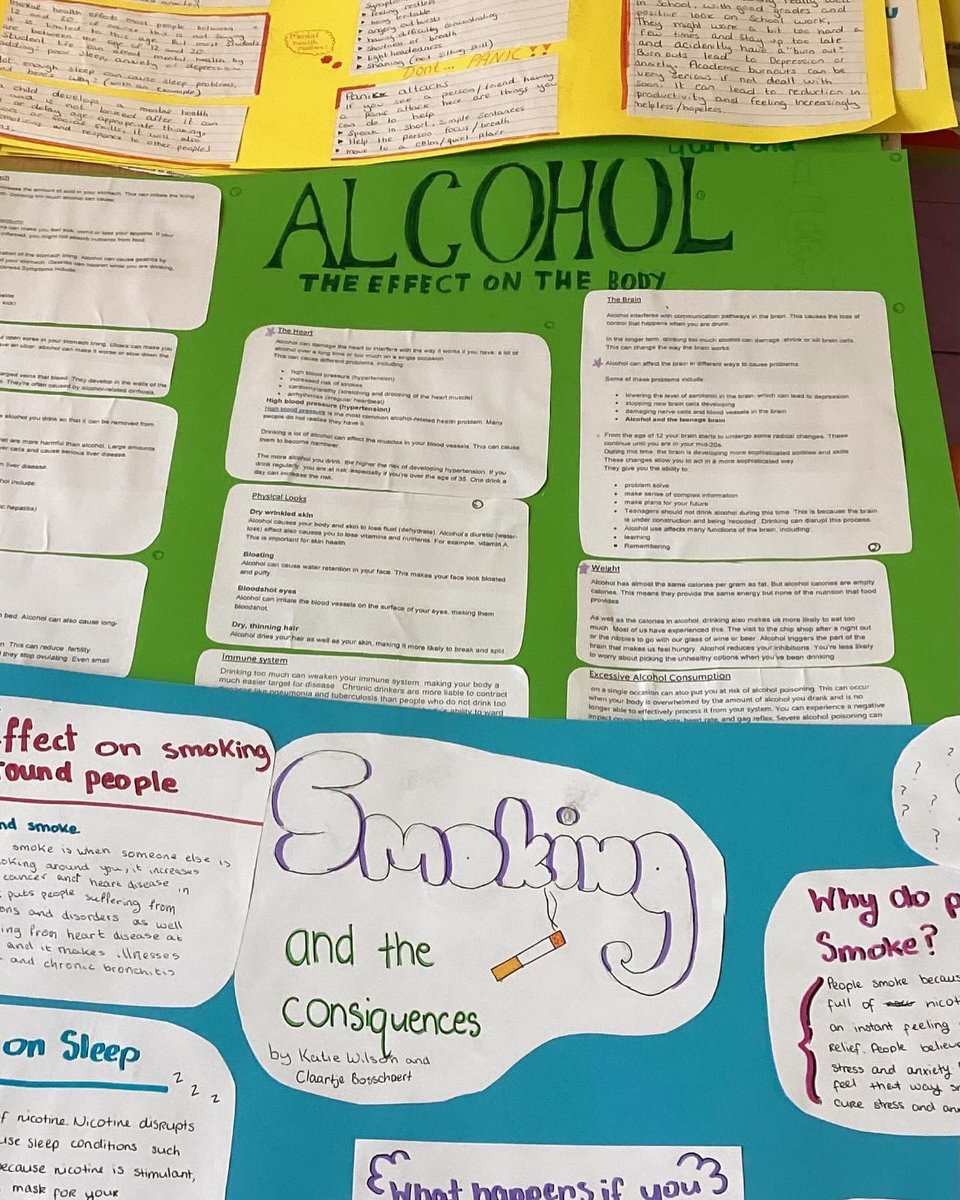 mental health effect most people between
12 and 20.
are between the age of 12 and 20
Student life can affect mental health by
adding: poor sleep, anxiety or depression
not enough sleep can cause sleep problems.
(with an example)
child develop a mental health
or delay age-appropriate thinking,
or social skills. it will also
emotions and response to other people!
Mental
health
Matters
Symptoms
feeling restless
being irritable
angry outbursts
having difficulty concealing
Shortness of breath
lightheadedness
shaking (not sitting still)
Don't... PANIC!!
Panick attacks
If you see a person/friend having
a panic attack here are things you
can do to help
▸ Speak in short, simple sentances
▸ Help the person focus/breath
▸ move to a calm/quiet place
in School, with good grades and
positive look on School work,
They might work a bit too hard a
few times and stay up too late
and acidently have a "burn out"
Burn outs lead to Depression or
anxiety. Academic burnouts can be
very serious if not dealt with
soon. It can lead to reduction in
productivity and feeling increasingly
helpless/hopeless.
ALCOHOL
THE EFFECT ON THE BODY
increase the amount of acid in your stomach. This can irritate the lining
Drinking too much alcohol can cause:
can make you feel sick, vomit or lose your appetite. If your
inflamed, you might not absorb nutrients from food.
of the stomach lining. Alcohol can cause gastritis by
your stomach. Gastritis can happen while you are drinking,
Symptoms include:
open sores in your stomach lining. Ulcers can make you
have an ulcer, alcohol can make it worse or slow down the
enlarged veins that bleed. They develop in the walls of the
They're often caused by alcohol-related cirrhosis.
alcohol you drink so that it can be removed from
that are more harmful than alcohol. Large amounts
liver cells and cause serious liver disease.
liver disease.
include:
hepatitis)
bed. Alcohol can also cause long-
This can reduce fertility
they stop ovulating. Even small
The Heart
Alcohol can damage the heart or interfere with the way it works if you have a lot of
alcohol over a long time or too much on a single occasion.
This can cause different problems, including:
• high blood pressure (hypertension)
• increased risk of strokes
• cardiomyopathy (stretching and drooping of the heart muscle)
• arrhythmias (irregular heartbeat)
High blood pressure (hypertension)
High blood pressure is the most common alcohol-related health problem. Many
people do not realise they have it.
Drinking a lot of alcohol can affect the muscles in your blood vessels. This can cause
them to become narrower.
The more alcohol you drink, the higher the risk of developing hypertension. If you
drink regularly, you are at risk especially if you're over the age of 35. One drink a
day can increase the risk.
Physical Looks
Dry wrinkled skin
Alcohol causes your body and skin to lose fluid (dehydrate). Alcohol's diuretic (water-
loss) effect also causes you to lose vitamins and nutrients. For example, vitamin A.
This is important for skin health.
Bloating
Alcohol can cause water retention in your face. This makes your face look bloated
and puffy.
Bloodshot eyes
Alcohol can irritate the blood vessels on the surface of your eyes, making them
bloodshot.
Dry, thinning hair
Alcohol dries your hair as well as your skin, making it more likely to break and split.
Immune system
Drinking too much can weaken your immune system, making your body a
much easier target for disease. Chronic drinkers are more liable to contract
diseases like pneumonia and tuberculosis than people who do not drink too
ability to ward
The Brain
Alcohol interferes with communication pathways in the brain. This causes the loss of
control that happens when you are drunk.
In the longer term, drinking too much alcohol can damage, shrink or kill brain cells.
This can change the way the brain works.
Alcohol can affect the brain in different ways to cause problems.
Some of these problems include:
• lowering the level of serotonin in the brain, which can lead to depression
• stopping new brain cells developing
• damaging nerve cells and blood vessels in the brain
• Alcohol and the teenage brain
From the age of 12 your brain starts to undergo some radical changes. These
continue until you are in your mid-20s.
During this time, the brain is developing more sophisticated abilities and skills.
These changes allow you to act in a more sophisticated way.
They give you the ability to:
• problem solve
• make sense of complex information
• make plans for your future
• Teenagers should not drink alcohol during this time. This is because the brain
is under construction and being 'recoded'. Drinking can disrupt this process.
• Alcohol use affects many functions of the brain, including:
• learning
• Remembering
Weight
Alcohol has almost the same calories per gram as fat. But alcohol calories are empty
calories. This means they provide the same energy but none of the nutrition that food
provides.
As well as the calories in alcohol, drinking also makes us more likely to eat too
much. Most of us have experienced this. The visit to the chip shop after a night out
or the nibbles to go with our glass of wine or beer. Alcohol triggers the part of the
brain that makes us feel hungry. Alcohol reduces your inhibitions. You're less likely
to worry about picking the unhealthy options when you've been drinking.
Excessive Alcohol Consumption
on a single occasion can also put you at risk of alcohol poisoning. This can occur
when your body is overwhelmed by the amount of alcohol you drank and is no
longer able to effectively process it from your system. You can experience a negative
impact on your breathing rate, heart rate, and gag reflex. Severe alcohol poisoning can
effect on smoking
round people
nd smoke
smoke is when someone else is
oking around you, it increases
cancer and heart disease in
puts people suffering from
ons and disorders as well
ing from heart disease at
and it makes illnesses
and chronic bronchitis
Smoking
and the
consiquences
by Katie Wilson and
Claartje Bosschaert
? ? ? ? ? ?
Why do p
Smoke?
People smoke becaus
full of nicot
an instant feeling
relief. People believe
stress and anxiety
feel that way s
cure stress and an
on Sleep
z z z
f nicotine. Nicotine disrupts
use sleep conditions such
because nicotine is stimulant,
mask for your
What happens if you